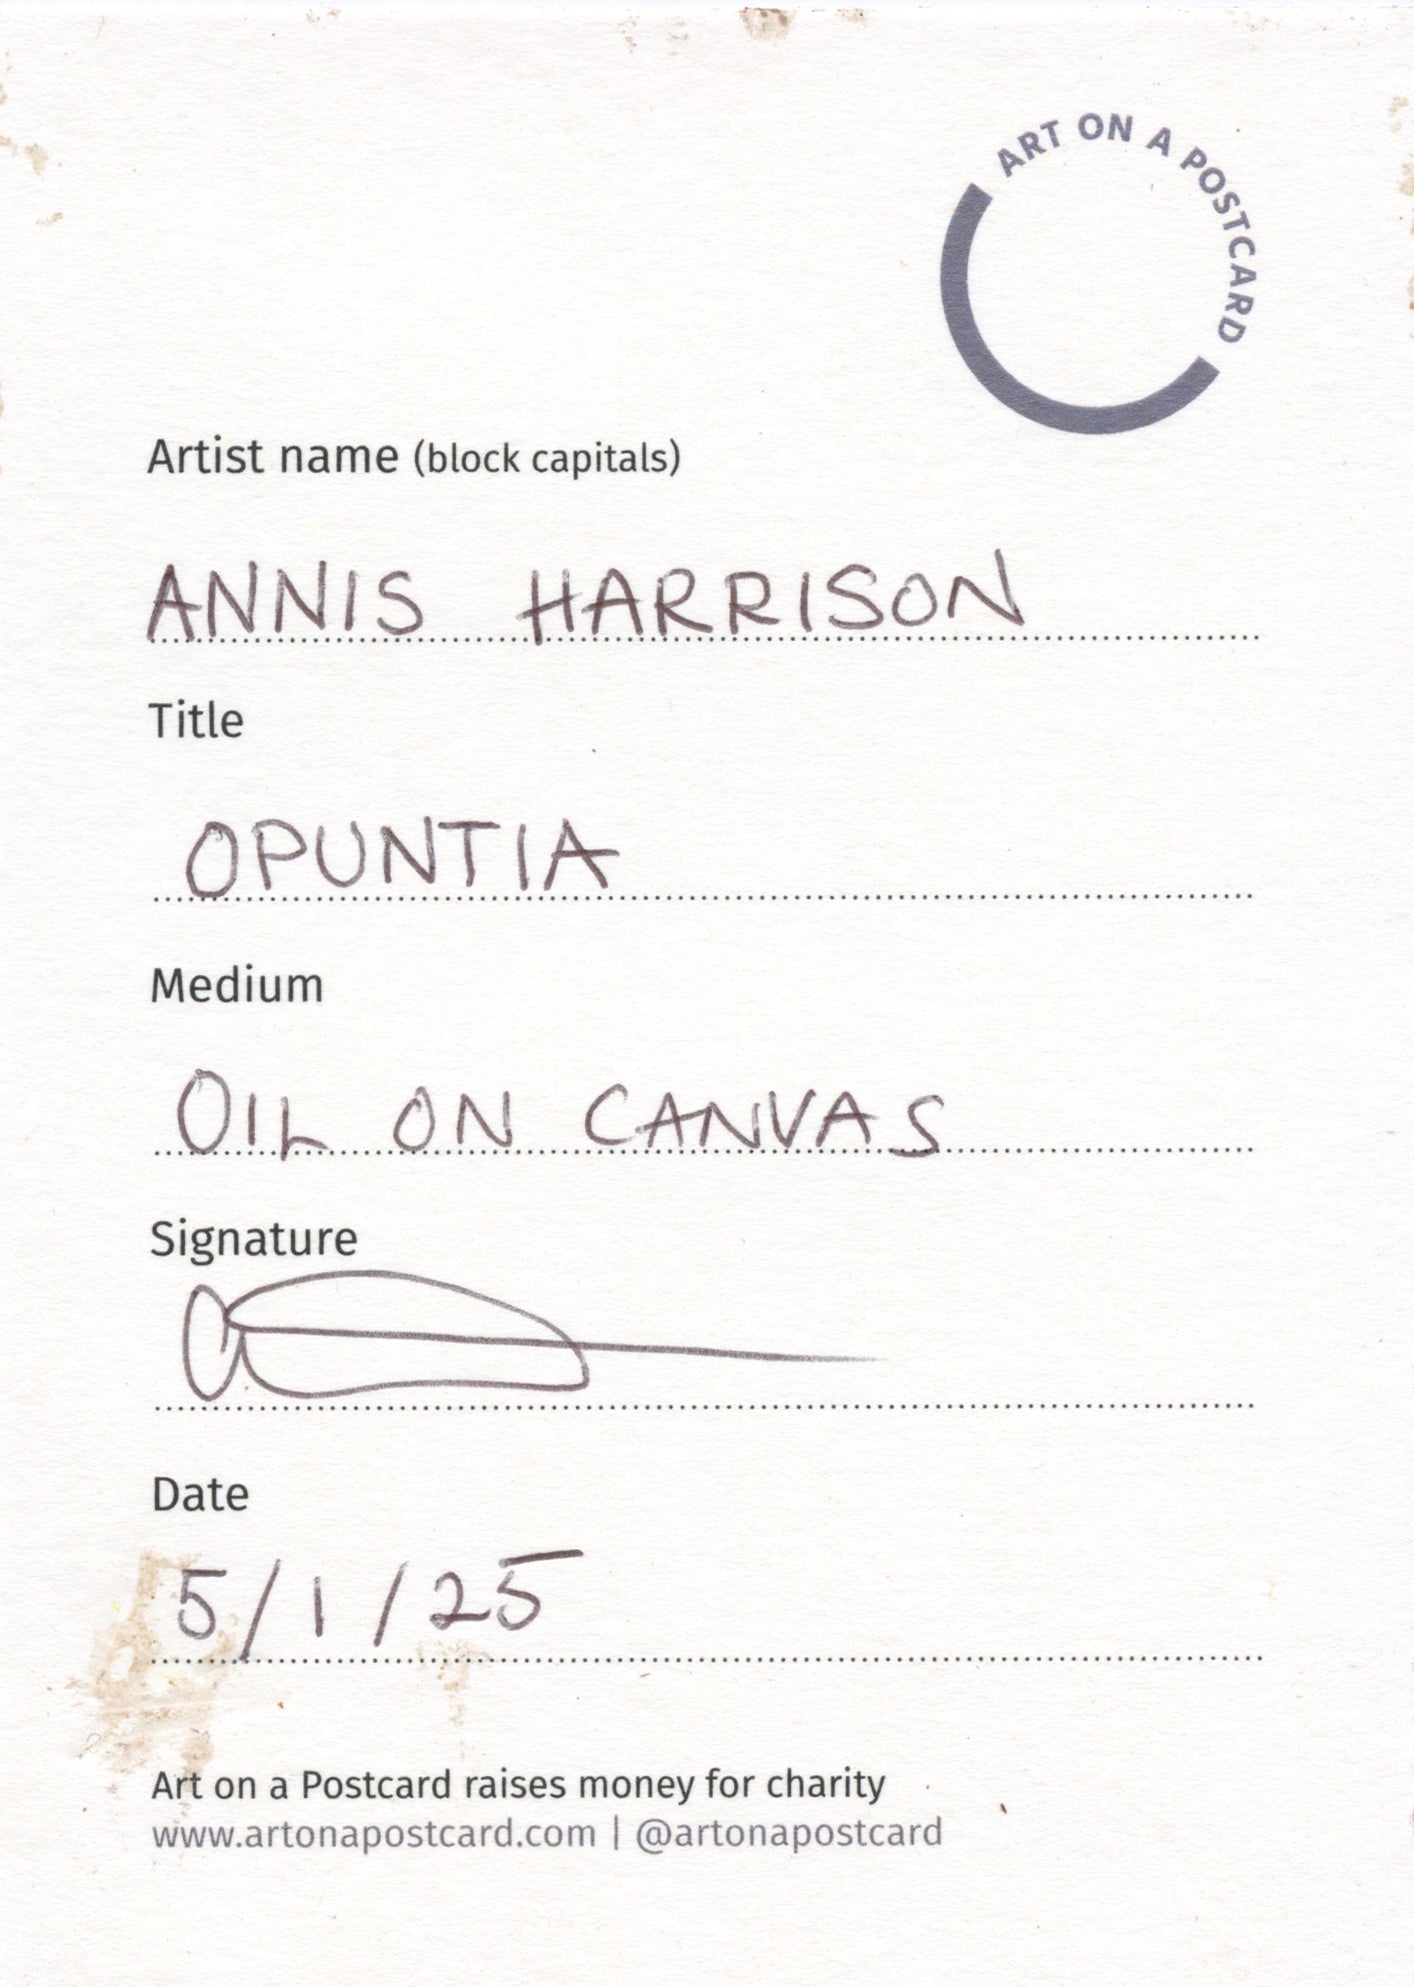 ART ON A POSTCARD
Artist name (block capitals)
ANNIS HARRISON
Title
OPUNTIA
Medium
OIL ON CANVAS
Signature
Date
5/1/25
Art on a Postcard raises money for charity
www.artonapostcard.com | @artonapostcard